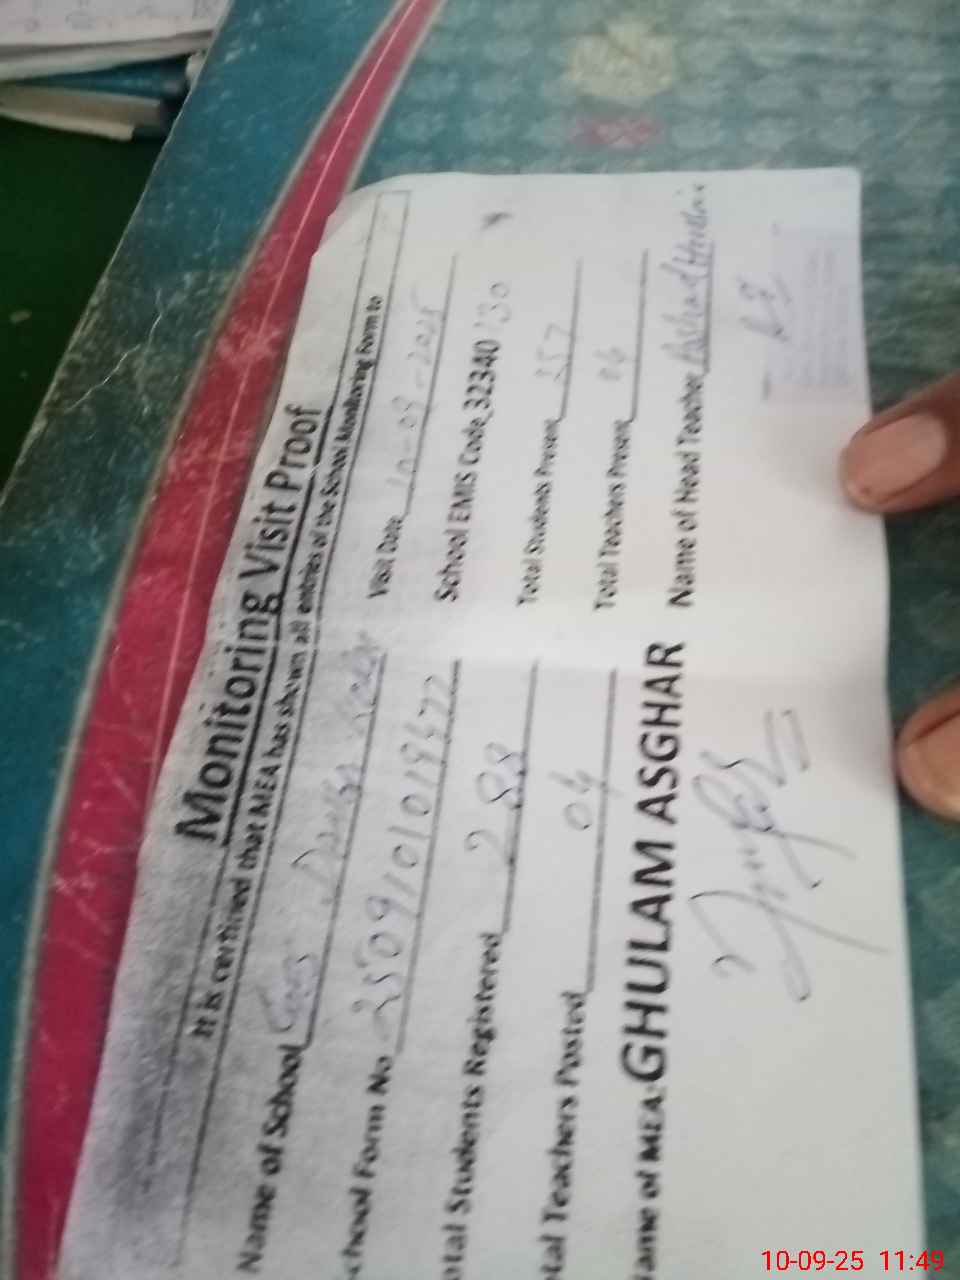 Monitoring Visit Proof
It is certified that MEA has shown all entries of the School Monitoring Form to
Name of School Visit Date 10-09-2025
chool Form No 2509101019477 School EMIS Code 32340130
otal Students Registered 288 Total Students Present 257
tal Teachers Posted 04 Total Teachers Present 04
ame of MEA. GHULAM ASGHAR Name of Head Teacher
10-09-25 11:49